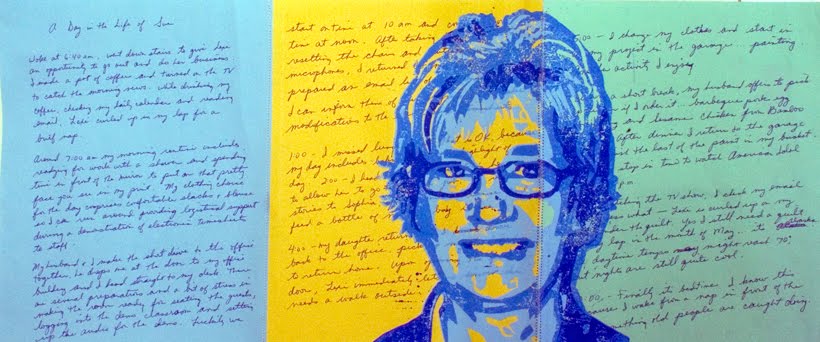 A Day in the Life of Sue
Woke at 6:40 am, went down stairs to give Lexi
an opportunity to go out and do her business
I made a pot of coffee and turned on the TV
to catch the morning news. While drinking my
coffee, checking my daily calendar and reading
email, Lexi curled up in my lap for a
brief nap.
Around 7:00 am my morning routine concludes
readying for work with a shower and spending
time in front of the mirror to put on that pretty
face you see in my print. My clothing choice
for the day comprises comfortable slacks & blouse
so I can run around providing logistical support
during a demonstration of electronic
to staff.
My husband & I make the short drive to the office
together, he drops me at the door to my office
building and I head straight to my desk. There
are several preparations and a bit of stress in
making the room ready for seating the guests,
logging into the demo classroom and setting
up the audio for the demo. Luckily we
start on time at 10 am and
time at noon. After taking
resetting the chairs and
microphones, I returned
prepared an email
I can inform them of
modifications to the
1:00 - I missed lunch is OK because
my day includes highlight of
day. 2:00 - I head
to allow her to go
stories to Sophia
feed a bottle of body
4:00 - my daughter returns
back to the office, pick
to return home. Upon
door, Lexi immediately
needs a walk outside.
:00 - I change my clothes and start in
my project in the garage... painting
activity I enjoy
a short break, my husband offers to pick
if I'd like it... barbeque pork egg
and sesame chicken from Bamboo
After dinner I return to the garage
the last of the paint in my bucket.
stop in time to watch American Idol
pm
the TV show, I check my email
what - Lexi is curled up on my
the quilt. Yes I still need a quilt
lap in the month of May... it's
daytime temps may might reach 70°
night are still quite cool.
:00, - Finally its bedtime. I know this
because I woke from a nap in front of the
nothing old people are caught doing.